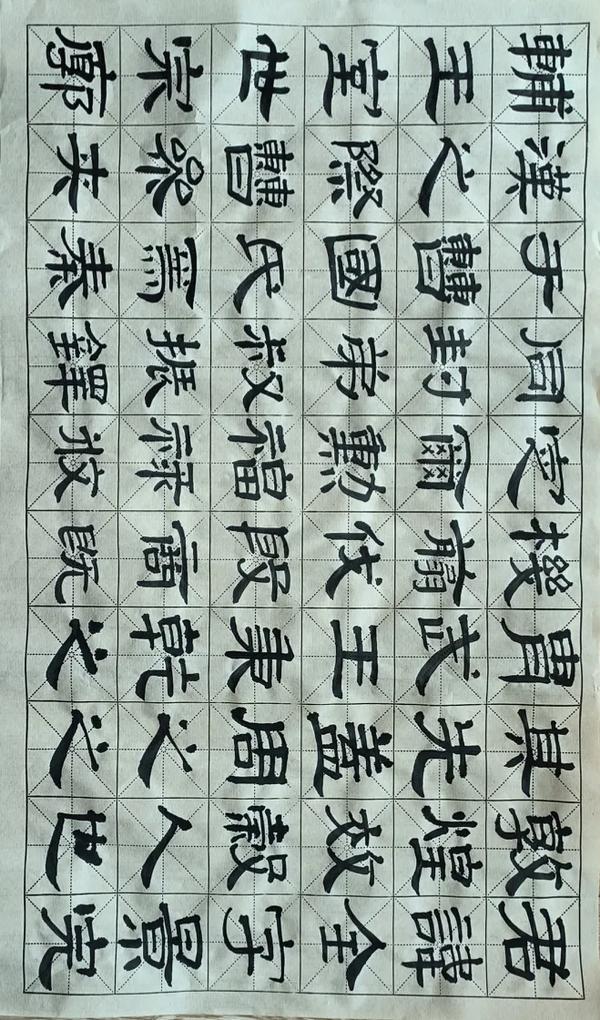 君諱全字景完
敦煌效穀人也
其先蓋周之
胄武王秉乾之
機翦伐殷商既
定爾勳福祿攸
同封弟叔振鐸
于曹國氏焉秦
漢之際曹參夾
輔王室世宗廓